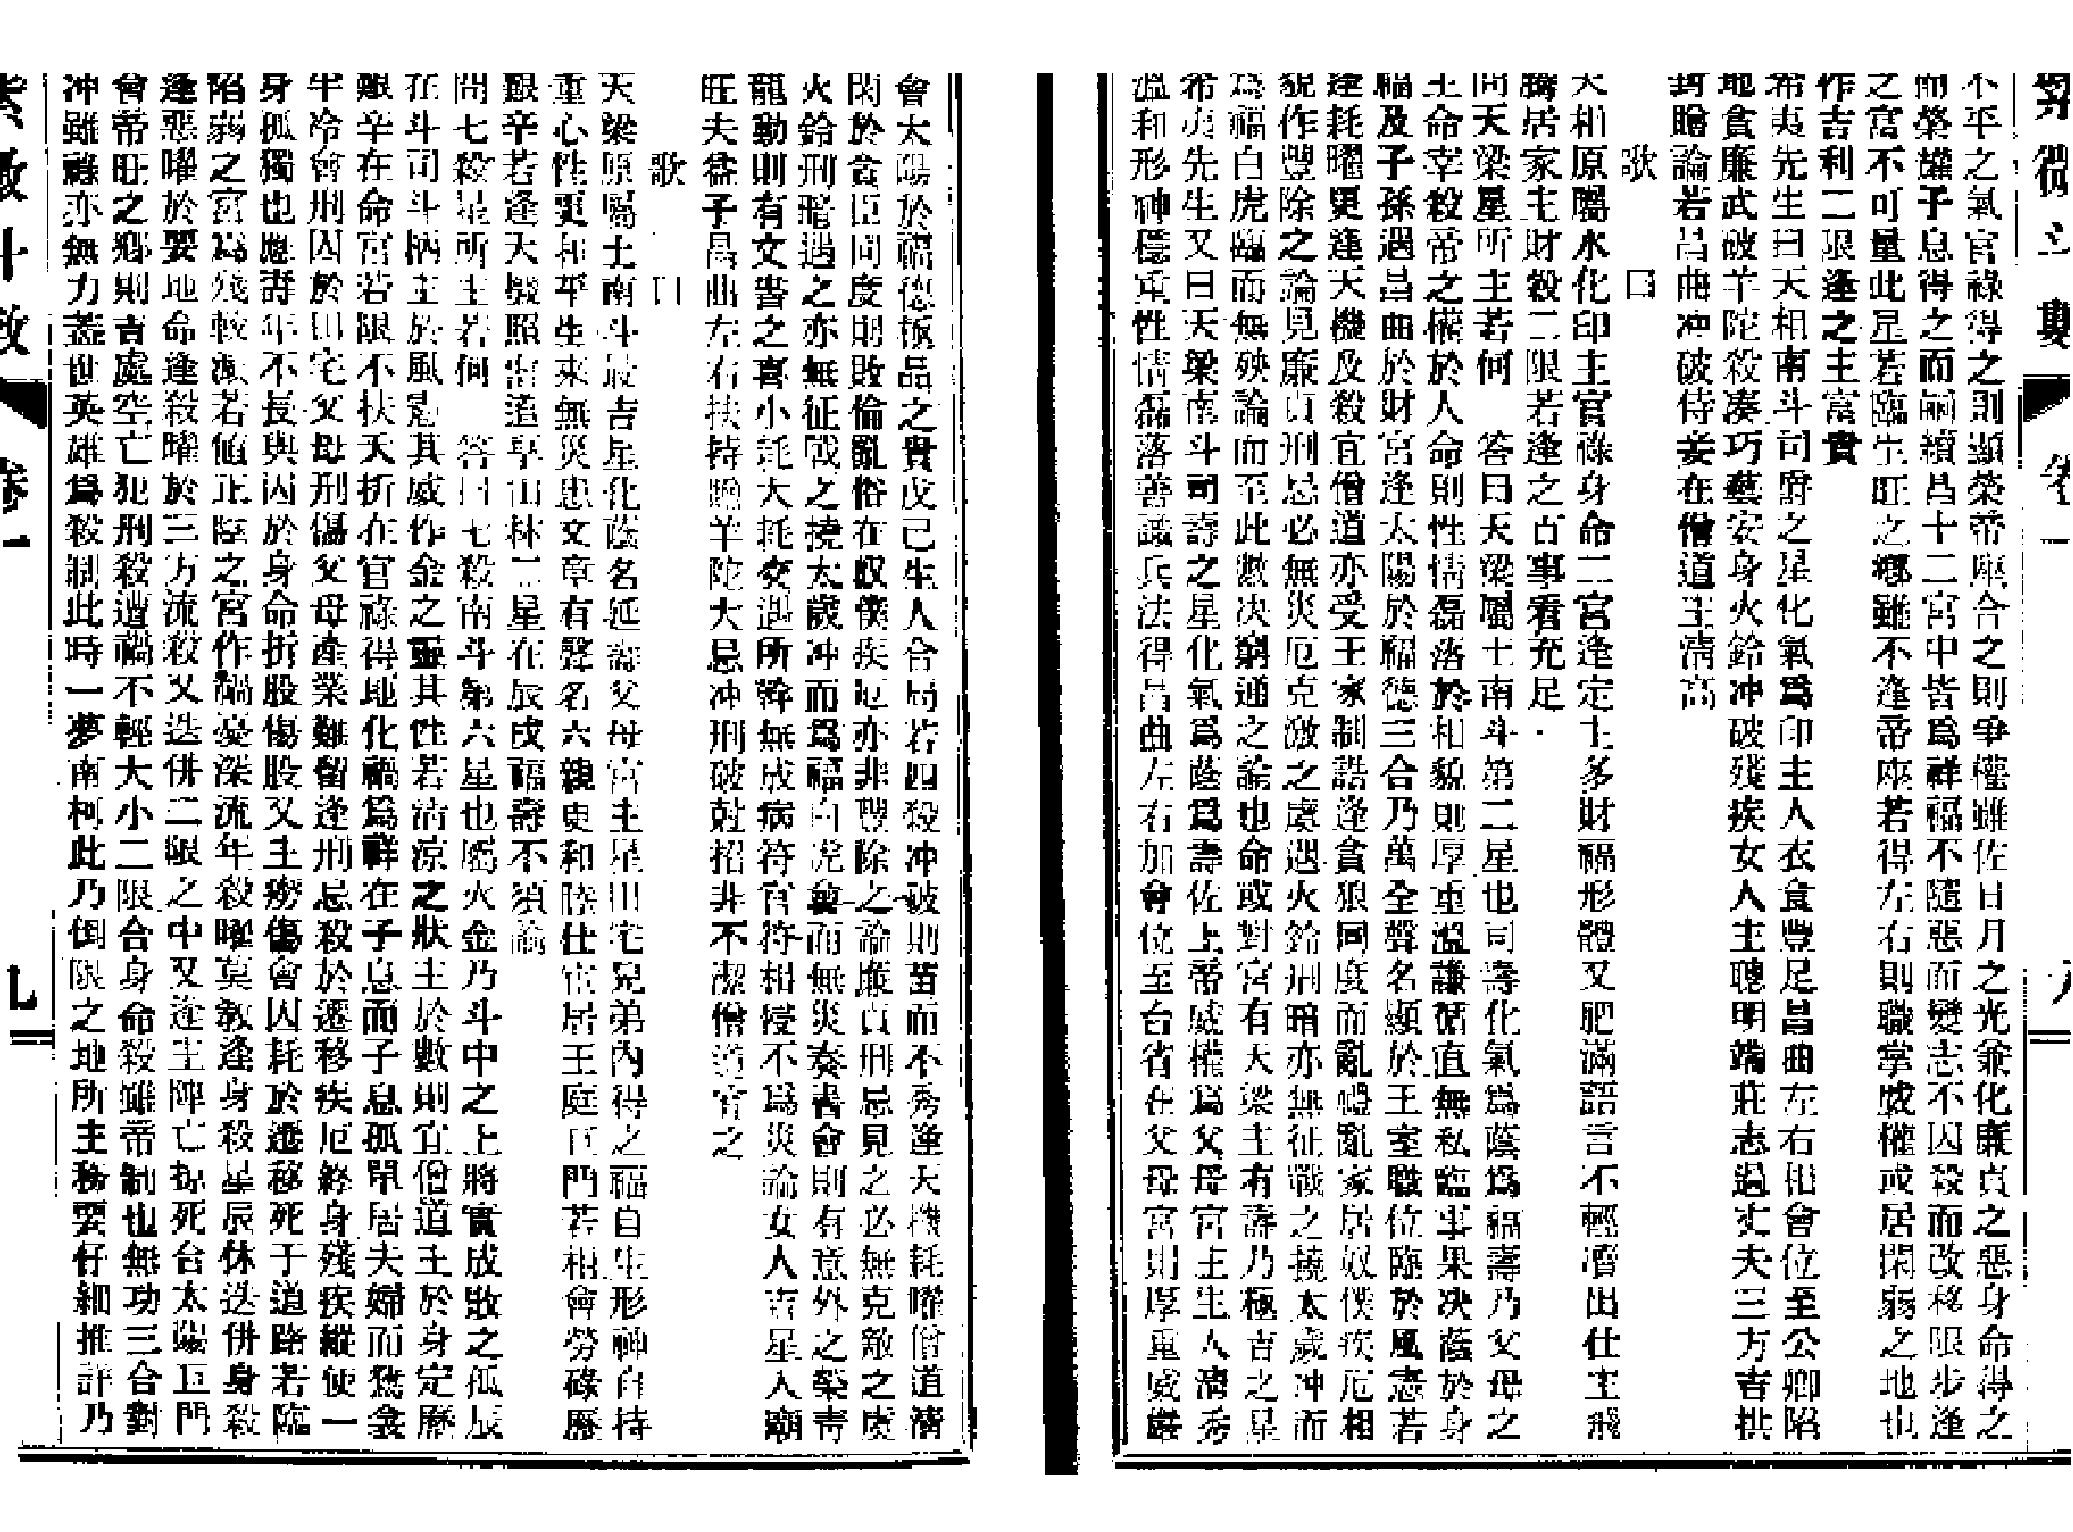 不平之氣官祿得之則顯榮帝座合之則爭權雖佐日月之光兼化廉貞之惡身命得之
而榮權子息得之而嗣續昌十二宮中皆爲祥福不隨惡而變志不因殺而改移限步逢
之富不可量此星若臨生旺之鄉雖不逢帝座若得左右則職掌威權或居閑弱之地也
作吉利二限逢之主富貴
希夷先生曰天相南斗司爵之星化氣爲印主人衣食豐足昌曲左右相會位至公卿陷
地貪廉武破羊陀殺湊巧藝安身火鈴冲破殘疾女人主聰明端莊志過丈夫三方吉拱
封贈論若昌曲冲破侍妾在僧道主清高
歌 曰
天相原屬水化印主官祿身命二宮逢定主多財福形體又肥滿語言不輕瀆出仕主飛
騰居家主財穀二限若逢之百事看充足
問天梁星所主若何 答曰天梁屬土南斗第二星也司壽化氣爲蔭爲福壽乃父母之
主命宰殺帝之權於人命則性情磊落於相貌則厚重溫謙循直無私臨事果决蔭於身
福及子孫遇昌曲於財宮逢太陽於福德三合乃萬全聲名顯於王室職位臨於風憲若
逢耗曜更逢天機及殺宜僧道亦受王家制誥逢貪狼同度而亂禮亂家居奴僕疾厄相
貌作豐除之論見廉貞刑忌必無災厄克激之虞遇火鈴刑暗亦無征戰之撓太歲冲而
爲福白虎臨而無殃論而至此數决窮通之論也命或對宮有天梁主有壽乃極吉之星
希夷先生又曰天梁南斗司壽之星化氣爲蔭爲壽佐上帝威權爲父母宮主生人清秀
溫和形神穩重性情磊落善識兵法得昌曲左右加會位至台省在父母宮則厚重威嚴
會太陽於福德極品之貴戊己生人合局若四殺冲破則苗而不秀逢天機耗曜僧道清
閑於貪巨同度則敗倫亂俗在奴僕疾厄亦非豐除之論廉貞刑忌見之必無克敵之虞
火鈴刑暗遇之亦無征戰之撓太歲冲而爲福白虎會而無災奏書會則有意外之榮青
龍動則有文書之喜小耗大耗交遇所幹無成病符官符相侵不爲災論女人吉星入廟
旺夫益子昌曲左右扶持贈羊陀火忌冲刑破尅招非不潔僧道宜之
歌 曰
天梁原屬土南斗最吉星化蔭名延壽父母宮主星田宅兄弟內得之福自生形神自持
重心性更和平生來無災患文章有聲名六親更和睦仕宦居王庭巨門若相會勞碌歷
艱辛若逢天機照出道享山林二星在辰戌福壽不須論
問七殺星所主若何 答曰七殺南斗第六星也屬火金乃斗中之上將實成敗之孤辰
在斗司斗柄主於風憲其威作金之靈其性若清凉之狀主於數則宜僧道主於身定歷
艱辛在命宮若限不扶夭折在官祿得地化禍爲祥在子息而子息孤單居夫婦而鴛衾
半冷會刑囚於田宅父母刑傷父母產業難留逢刑忌殺於遷移疾厄終身殘疾縱使一
身孤獨也應壽年不長與囚於身命折股傷股又主癆傷會囚耗於遷移死于道路若臨
陷弱之宮爲殘較减若値正陰之宮作禍憂深流年殺曜莫教逢身殺星辰休迭併身殺
逢惡曜於要地命逢殺曜於三方流殺又迭併二限之中又逢主陣亡掠死合太陽巨門
會帝旺之鄉則吉處空亡犯刑殺遭禍不輕大小二限合身命殺雖帝制也無功三合對
冲雖祿亦無力蓋世英雄爲殺制此時一夢南柯此乃倒限之地所主務要仔細推評乃